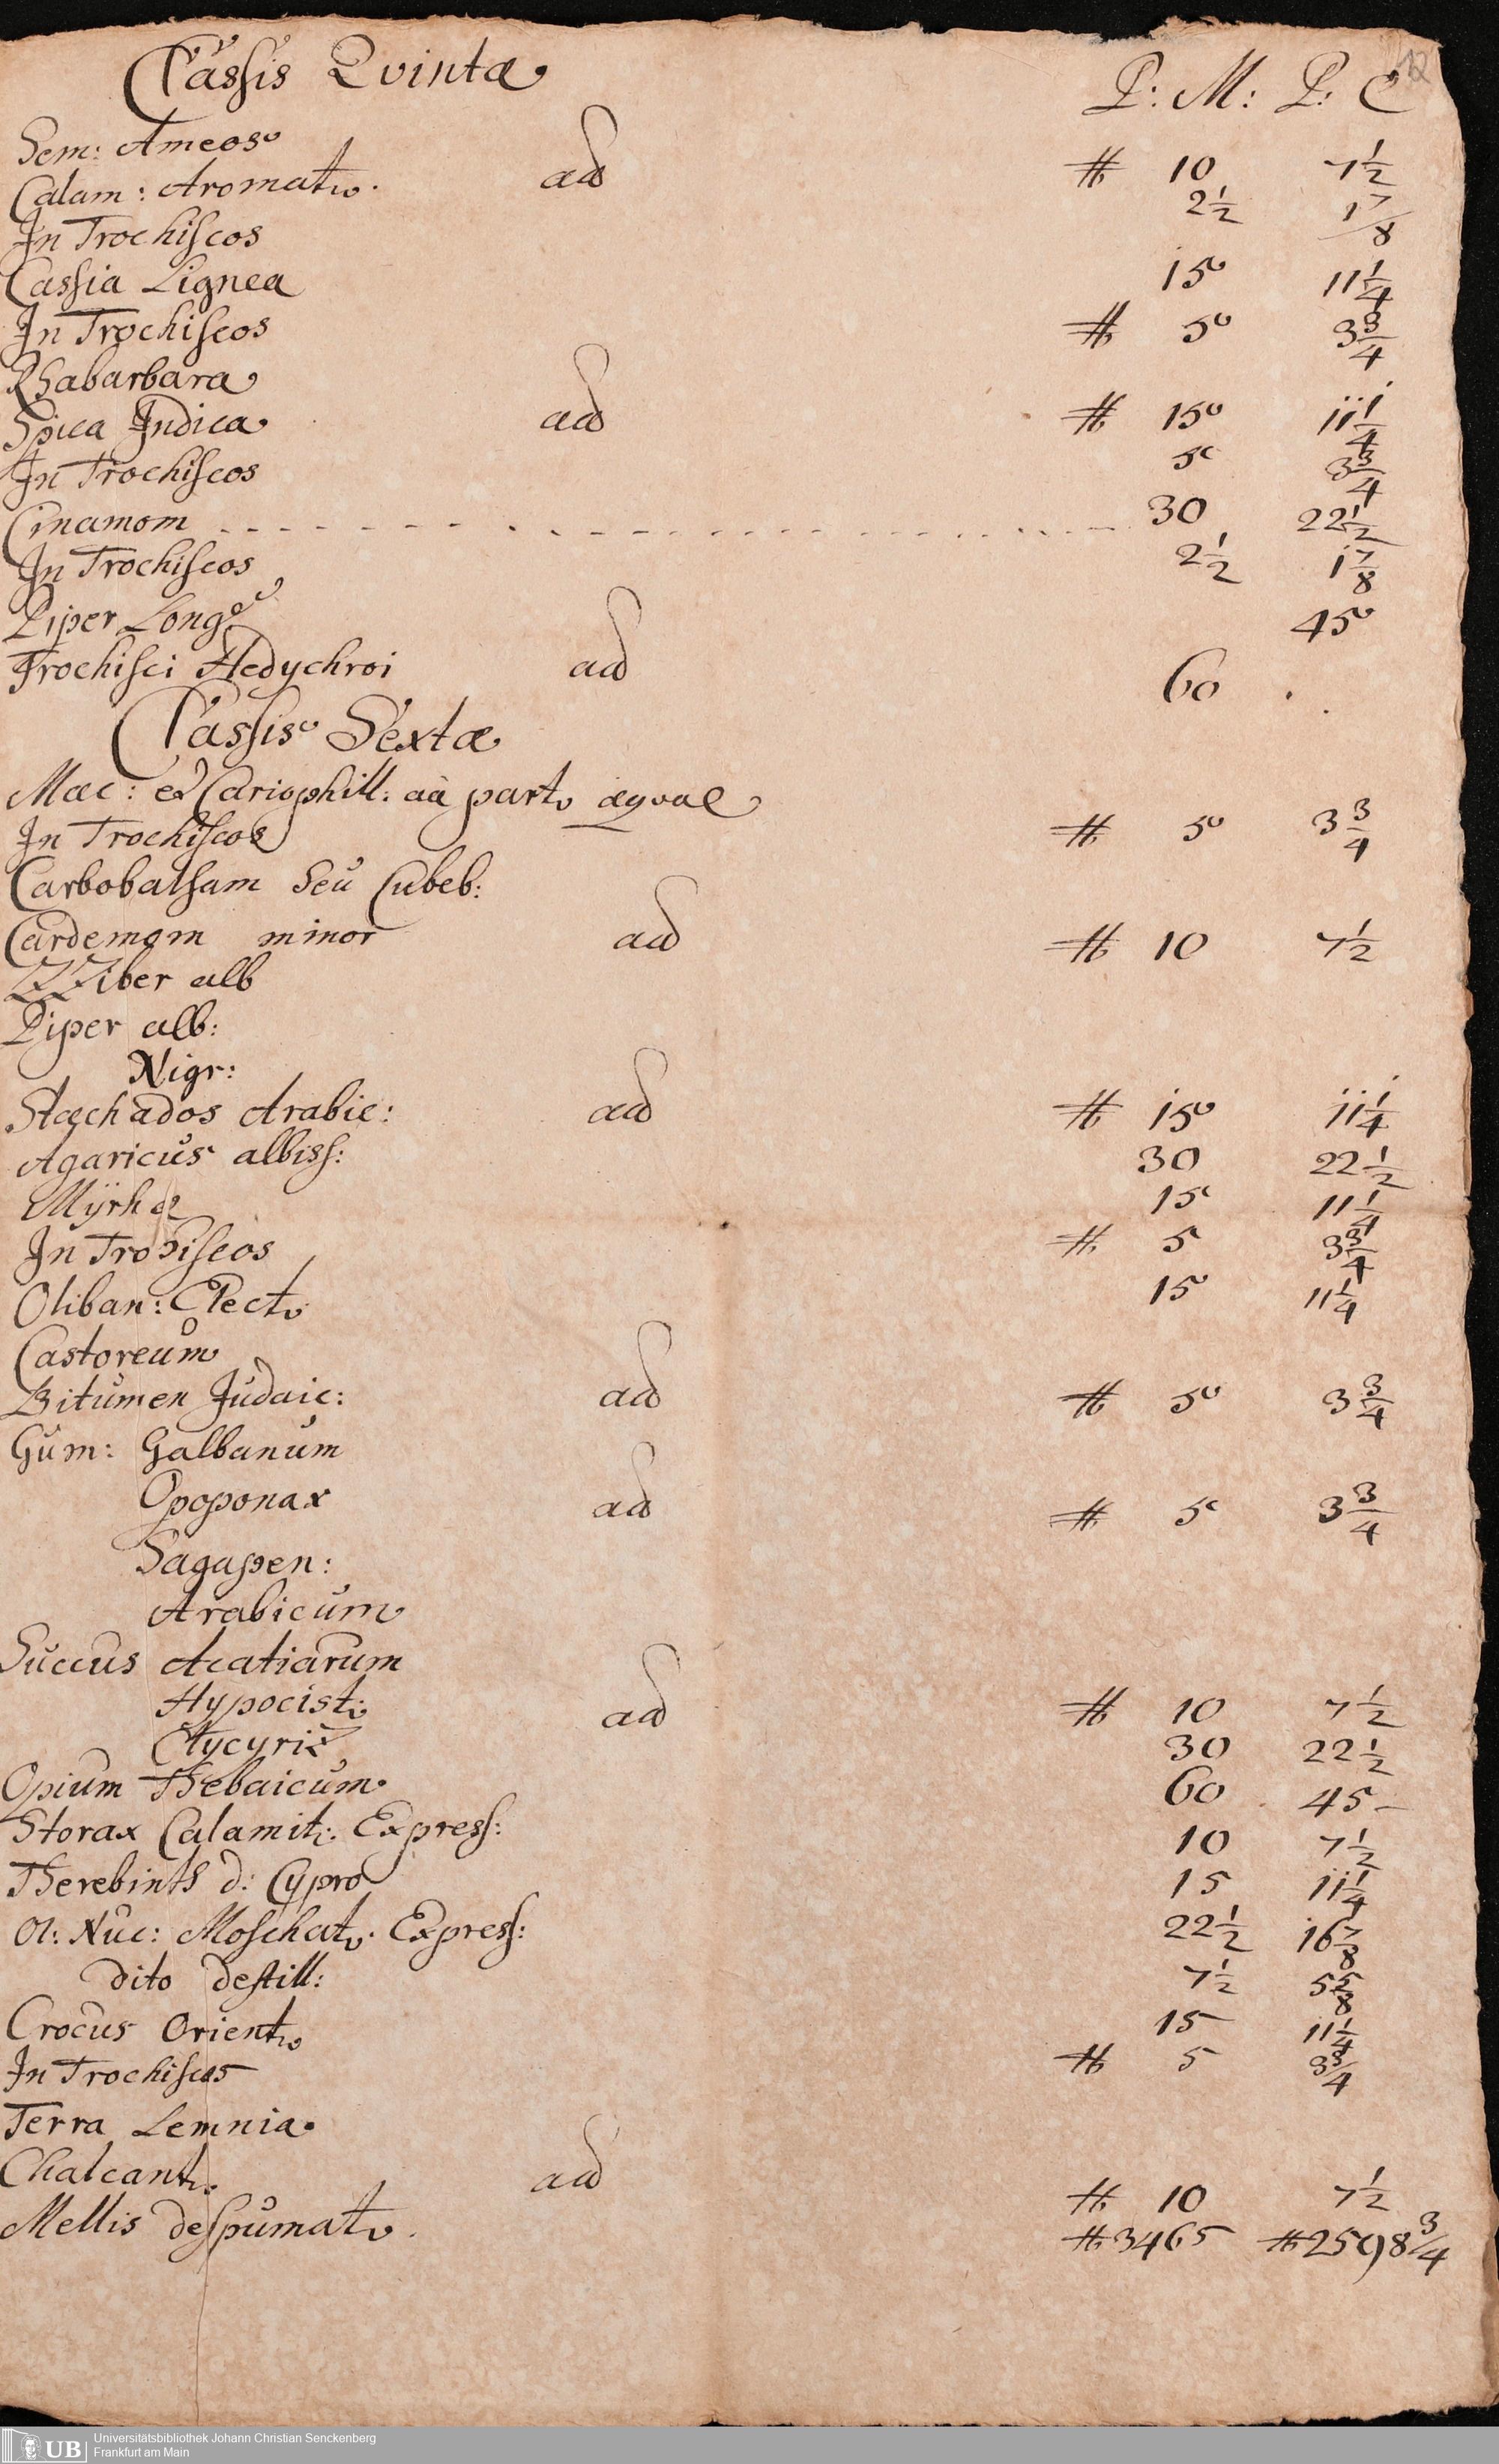 Classis Qvintæ P: M: P: C
12
Sem: Ameos
Calam: Aromat. aa ℔ 10 7 1/2
In Trochiscos 2 1/2 1 7/8
Cassia Lignea 15 11 1/4
In Trochiscos ℔ 5 3 3/4
Rhabarbara
Spica Indica aa ℔ 15 11 1/4
In Trochiscos 5 3 3/4
Cinamom - - - - - - - - - - 30 22 1/2
In Trochiscos 2 1/2 1 7/8
Piper Long 45
Trochisci Hedychroi aa 60
Classis Sextæ
Mac: et Cariophill: aa part. æqval
In Trochiscos ℔ 5 3 3/4
Carbobalsam seu Cubeb:
Cardemom minor aa ℔ 10 7 1/2
ZZiber alb
Piper alb:
Nigr:
Stæchados Arabic: aa ℔ 15 11 1/4
Agaricus albiss: 30 22 1/2
Mÿrhæ 15 11 1/4
In Trochiscos ℔ 5 3 3/4
Oliban: Elect. 15 11 1/4
Castoreum
Bitumen Judaic: aa ℔ 5 3 3/4
Gum: Galbanum
Opoponax aa ℔ 5 3 3/4
Sagapen:
Arabicum
Succus Acatiarum
Hypocist. aa ℔ 10 7 1/2
Glycyriz 30 22 1/2
Opium Thebaicum 60 45 -
Storax Calamit: Express: 10 7 1/2
Therebinth d: Cypro 15 11 1/4
Ol: Nuc: Moschat. Express: 22 1/2 16 7/8
dito destill: 7 1/2 5 5/8
Crocus Orient. 15 11 1/4
In Trochiscos ℔ 5 3 3/4
Terra Lemnia
Chalcant. aa ℔ 10 7 1/2
Mellis despumat. ℔ 3465 ℔ 2598 3/4
UB
Universitätsbibliothek Johann Christian Senckenberg
Frankfurt am Main